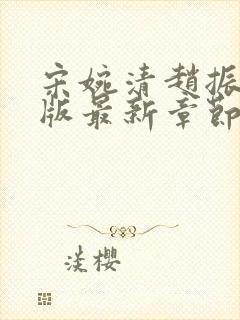 宋婉清趙振
版最新章節
淡櫻